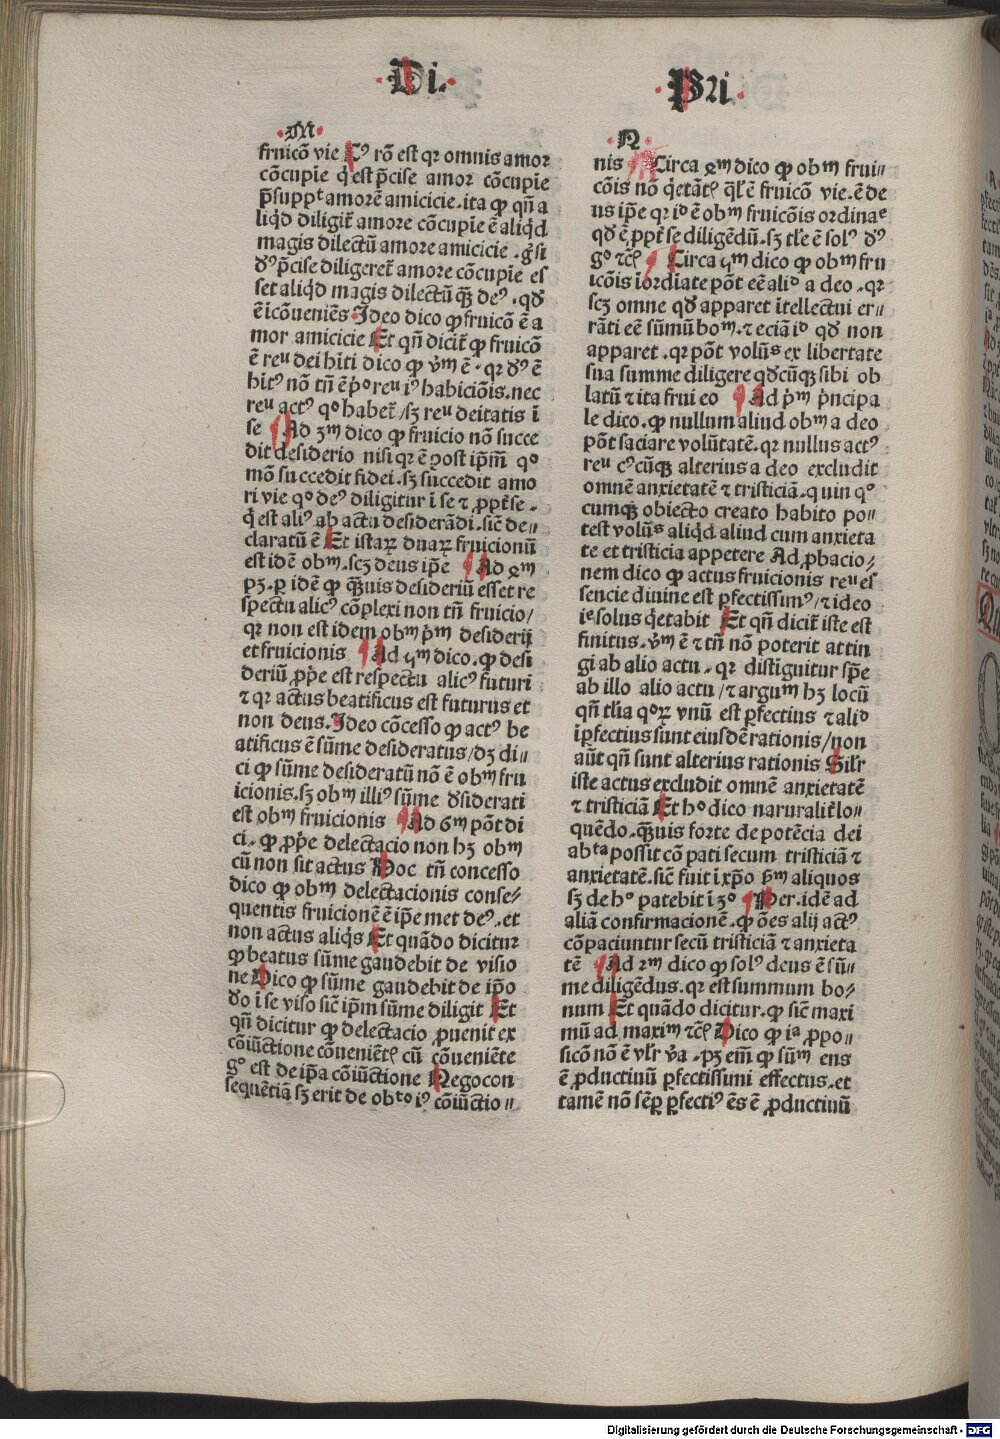 ·Di.·
·Pri·
·M·
fruicō vie Cꝰ rō est qꝛ omnis amoꝛ
cōcupīe q̇ est p̄cise amoꝛ cōcupīe
p̄suppᵗ amorē amicicie. ita ꝙ qn̄ a
liq̇d diligit᷑ amore cōcupīe ē aliq̇d
magis dilectū amore amicicie . gͥ si
dꝰ p̄cise diligeret᷑ amore cōcupīe es
set aliq̇d magis dilectū qꝫ̄ deꝰ . qd̄
ē icōueniēs. Ideo dico ꝙ fruicō ē a
mor amicicie Et qn̄ dicit᷑ ꝙ fruicō
ē reᵘ dei hīti dico ꝙ v̄m ē . qꝛ dꝰ ē
hītꝰ nō tn̄ ē pͥᵒ reᵘ iꝰ habiciōis. nec
reᵘ actꝰ qᵒ habet᷑ / sꝫ reᵘ deitatis ī
se Ad ʒᵐ dico ꝙ fruicio nō succe
dit desiderio nisi qꝛ ē post ip̄m̄ qᵒ
mō succedit fidei. sꝫ succedit amo
ri vie qᵒ deꝰ diligitur ī se ⁊ ꝓpt̄ se .
q̇ est aliꝰ ab actu desiderādi. sic̄ de〃
claratū ē Et istaꝝ duaꝝ fruicionū
est idē obᵐ . scꝫ deus ip̄e Ad 4ᵐ
pꝫ. ꝑ idē ꝙ qꝫ̄uis desideriū esset re
spectu alicꝰ cōplexi non tn̄ fruicio/
qꝛ non est idem obᵐ p̄m desiderij
et fruicionis Ad 5ᵐ dico. ꝙ desi
deriū ꝓp̄e est respectu alicꝰ futuri
⁊ qꝛ actus beatificus est futurus et
non deus. Ideo cōcesso ꝙ actꝰ be
atificus ē sūme desideratus / dꝫ di〃
ci ꝙ sūme desideratū nō ē obᵐ fru
icionis. sꝫ obᵐ illiꝰ sūme dsiderati
est obᵐ fruicionis Ad 6ᵐ pōt di
ci. ꝙ ꝓp̄e delectacio non hꝫ obᵐ
cū non sit actus Hoc tn̄ concesso
dico ꝙ obᵐ delectacionis conse〃
quentis fruicionē ē ip̄e met deꝰ . et
non actus aliq̇s Et quādo dicitur
ꝙ beatus sūme gaudebit de visio
ne Dico ꝙ sūme gaudebit de ip̄o
do ī se viso sic̄ ip̄m sūme diligit Et
qn̄ dicitur ꝙ delectacio ꝓuenit ex
cōiūctione cōueniēt̄ cū cōueniēte
gᵒ est de ip̄a cōiūctione Nego con
sequētiā sꝫ erit de obᵗᵒ iꝰ cōiūctio〃
·N·
nis Circa 4ᵐ dico ꝙ obᵐ frui〃
cōis nō q̇etāt̄ ql̄ ē fruicō vie. ē de
us ip̄e qꝛ iᵈ ē obᵐ fruicōis ordinaᵉ
qd̄ ē ꝓpt̄ se diligēdū. sꝫ tl̄e ē solꝰ dꝰ
gᵒ ⁊c̄ Circa 5ᵐ dico ꝙ obᵐ fru
icōis īordiate pōt eē aliᵈ a deo . qꝛ
scꝫ omne qd̄ apparet ītellectui er〃
rāti eē sūmū boᵐ. ⁊ eciā iᵈ qd̄ non
apparet . qꝛ pōt volūˢ ex libertate
sua summe diligere qd̄cūqꝫ sibi ob
latū ⁊ ita frui eo Ad p̄m p̄ncipa
le dico. ꝙ nullum aliud obᵐ a deo
pōt saciare volūtatē. qꝛ nullus actꝰ
reᵘ cꝰcūqꝫ alterius a deo excludit
omnē anxietatē ⁊ tristiciā. quin qᵒ
cumqꝫ obiecto creato habito po〃
test volūˢ aliq̇d aliud cum anxieta
te et tristicia appetere Ad ꝓbacio〃
nem dico ꝙ actus fruicionis reᵘ es
sencie diuine est ꝑfectissimꝰ / ⁊ ideo
iᵉ solus q̇etabit Et qn̄ dicit᷑ iste est
finitus. v̄m ē ⁊ tn̄ nō poterit attin
gi ab alio actu . qꝛ distiguitur sp̄e
ab illo alio actu / ⁊ arguᵐ hꝫ locū
qn̄ tl̄ia qᵒꝝ vnū est ꝑfectius ⁊ aliᵈ
iꝑfectius sunt eiusdē rationis / non
aūt qn̄ sunt alterius rationis Silr̄
iste actus excludit omnē anxietatē
⁊ tristiciā Et hᵒ dico naturalit᷑ lo〃
quēdo. qꝫ̄uis forte de potēcia dei
abᵗᵃ possit cō pati secum tristiciā ⁊
anxietatē. sic̄ fuit ī xp̄o ẜm aliquos
sꝫ de hᵒ patebit ī 3ᵒ Per. idē ad
aliā confirmacionē. ꝙ ōes alij actꝰ
cōpaciuntur secū tristiciā ⁊ anxieta
tē Ad 2ᵐ dico ꝙ solꝰ deus ē sū〃
me diligēdus. qꝛ est summum bo〃
num Et quādo dicitur. ꝙ sic̄ maxi
mū ad maxiᵐ ⁊c̄ Dico ꝙ iᵃ ꝓpo〃
sicō nō ē vlr̄ v̄a . pꝫ em̄ ꝙ sūᵐ ens
ē ꝓductiuū ꝑfectissimi effectus. et
tamē nō sēꝑ ꝑfectiꝰ ēs ē ꝓductiuū
Digitalisierung gefördert durch die Deutsche Forschungsgemeinschaft - DFG